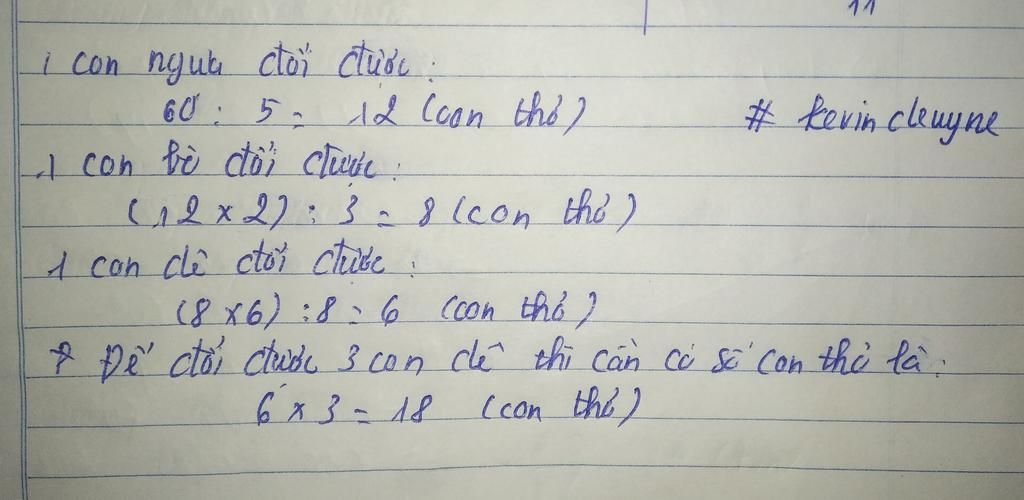 11
1 con ngựa đổi được:
60 : 5 = 12 (con thỏ)
# kevin cleuyne
1 con bò đổi được:
(12 x 2) : 3 = 8 (con thỏ)
1 con dê đổi được:
(8 x 6) : 8 = 6 (con thỏ)
Để đổi được 3 con dê thì cần có số con thỏ là:
6 x 3 = 18 (con thỏ)